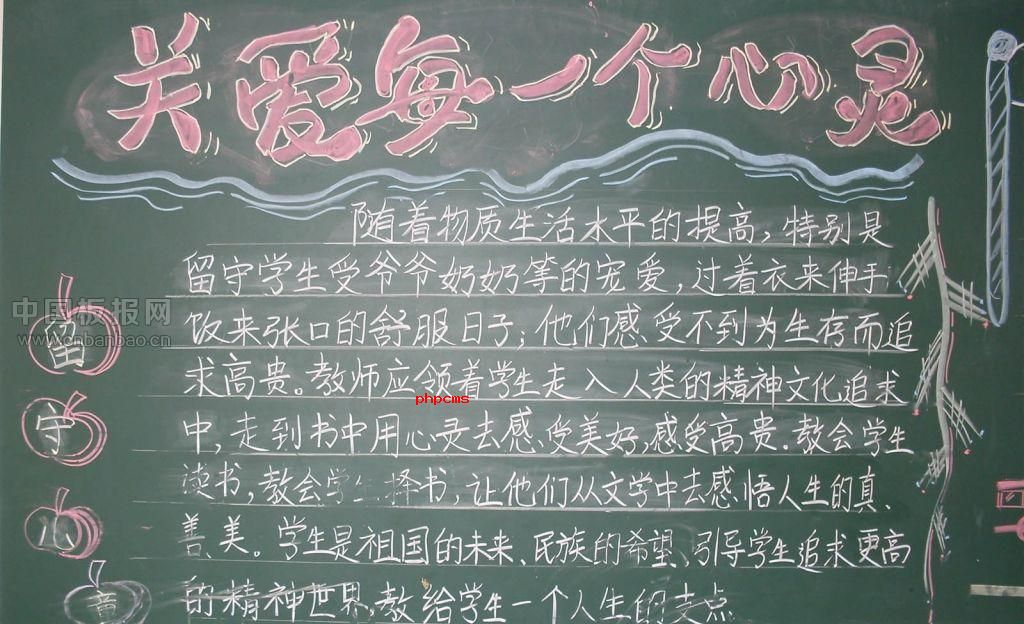 关爱每一个心灵
随着物质生活水平的提高，特别是
留守学生受爷爷奶奶等的宠爱，过着衣来伸手
饭来张口的舒服日子；他们感受不到为生存而追
求高贵。教师应领着学生走入人类的精神文化追求
中，走到书中用心灵去感受美好，感受高贵。教会学生
读书，教会学生择书，让他们从文学中去感悟人生的真、
善、美。学生是祖国的未来、民族的希望、引导学生追求更高
的精神世界，教给学生一个人生的支点
留
守
心
中国板报网
www.cnbanbao.cn
phpcms